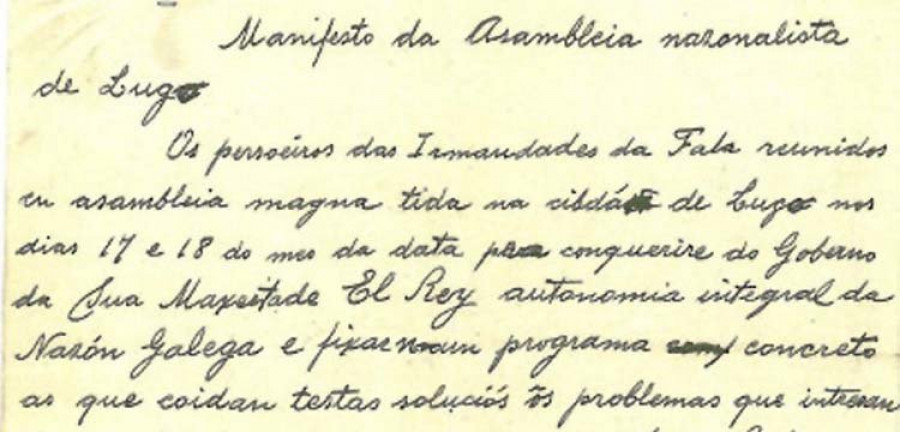 Manifesto da Asambleia nazonalista
de Lugo
Os persoeiros das Irmandades da Fala reunidos
en asambleia magna tida na cibdá de Lugo nos
dias 17 e 18 do mes da data pra conquerire do Goberno
da Sua Maxestade El Rey autonomia integral da
Nazón Galega e fixar nun programa concreto
as que coidan testas soluciós ôs problemas que intresan